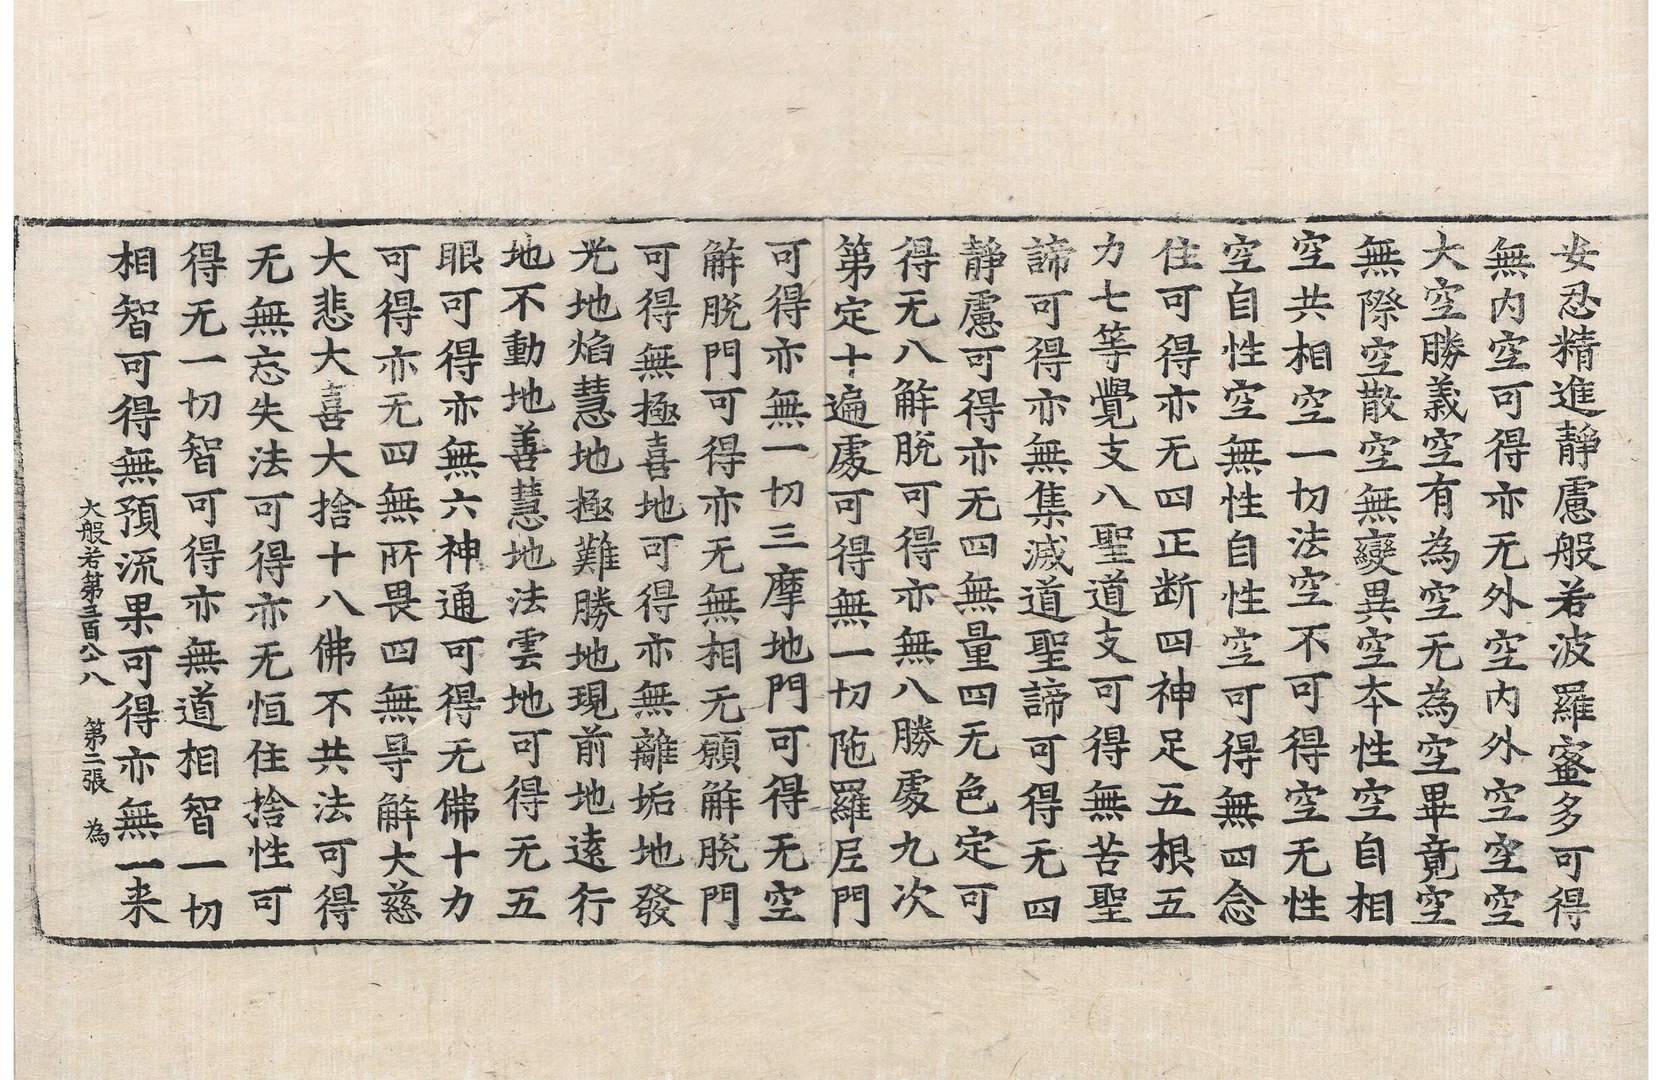 安忍精進靜慮般若波羅蜜多可得
無内空可得亦无外空内外空空空
大空勝義空有為空无為空畢竟空
無際空散空無變異空本性空自相
空共相空一切法空不可得空无性
空自性空無性自性空可得無四念
住可得亦无四正断四神足五根五
力七等覺支八聖道支可得無苦聖
諦可得亦無集滅道聖諦可得无四
靜慮可得亦无四無量四无色定可
得无八解脱可得亦無八勝處九次
第定十遍處可得無一切陁羅尼門
可得亦無一切三摩地門可得无空
解脱門可得亦无無相无願解脱門
可得無極喜地可得亦無離垢地發
光地焰慧地極難勝地現前地遠行
地不動地善慧地法雲地可得无五
眼可得亦無六神通可得无佛十力
可得亦无四無所畏四無㝵解大慈
大悲大喜大捨十八佛不共法可得
无無忘失法可得亦无恒住捨性可
得无一切智可得亦無道相智一切
相智可得無預流果可得亦無一来
大般若第三百八十八 第二張 為